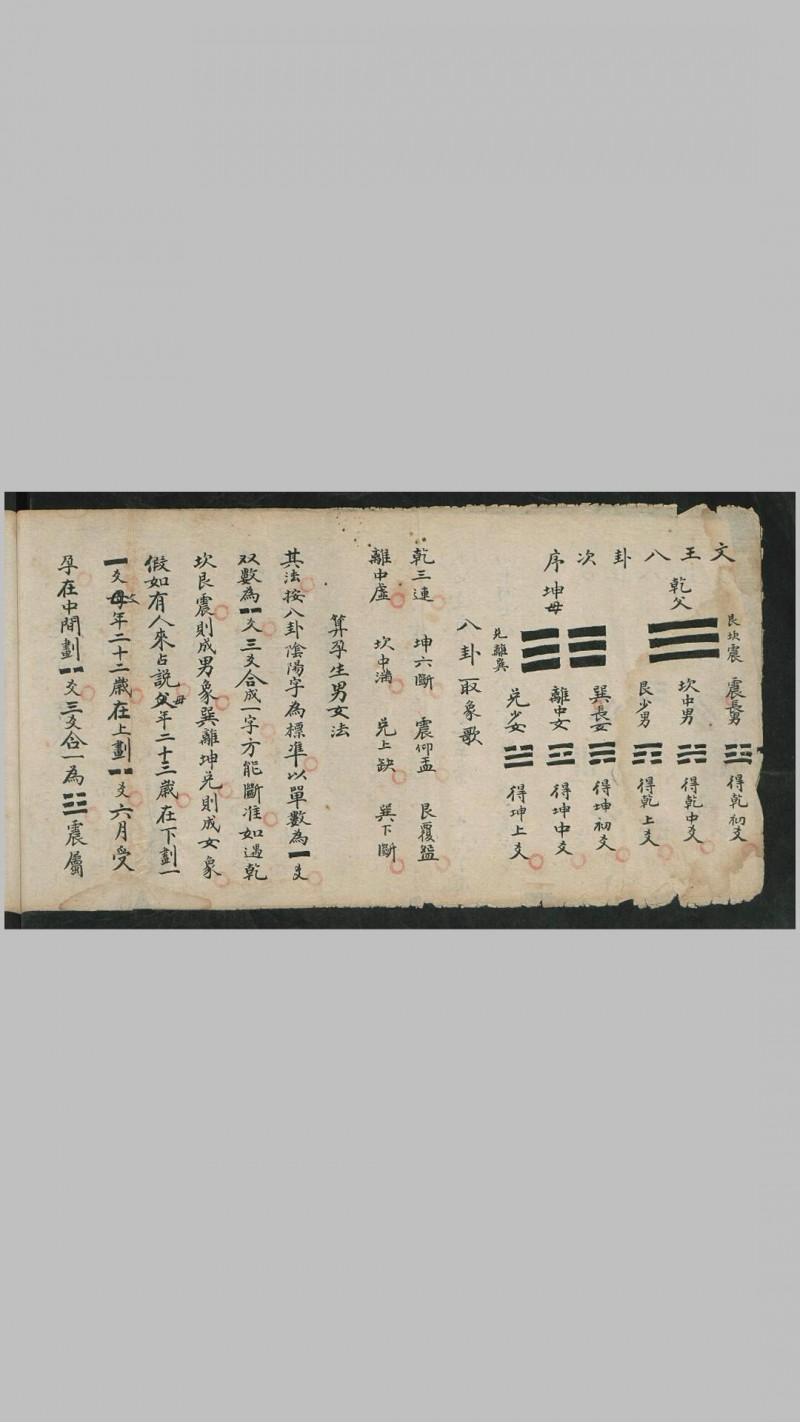 文王八卦次序
乾父
艮坎震
震長男 ☳ 得乾初爻
坎中男 ☵ 得乾中爻
艮少男 ☶ 得乾上爻
坤母
兌離巽
巽長女 ☴ 得坤初爻
離中女 ☲ 得坤中爻
兌少女 ☱ 得坤上爻
八卦取象歌
乾三連 坤六斷 震仰盂 艮覆盌
離中虛 坎中滿 兌上缺 巽下斷
算孕生男女法
其法按八卦陰陽字為標準以單數為⚊爻
双數為⚋爻三爻合成一字方能斷准如遇乾
坎艮震則成男象巽離坤兌則成女象
假如有人來占說父年二十三歲在下劃一
⚊爻母年二十二歲在上劃⚋爻六月受
孕在中間劃⚋爻三爻合一為☳震屬